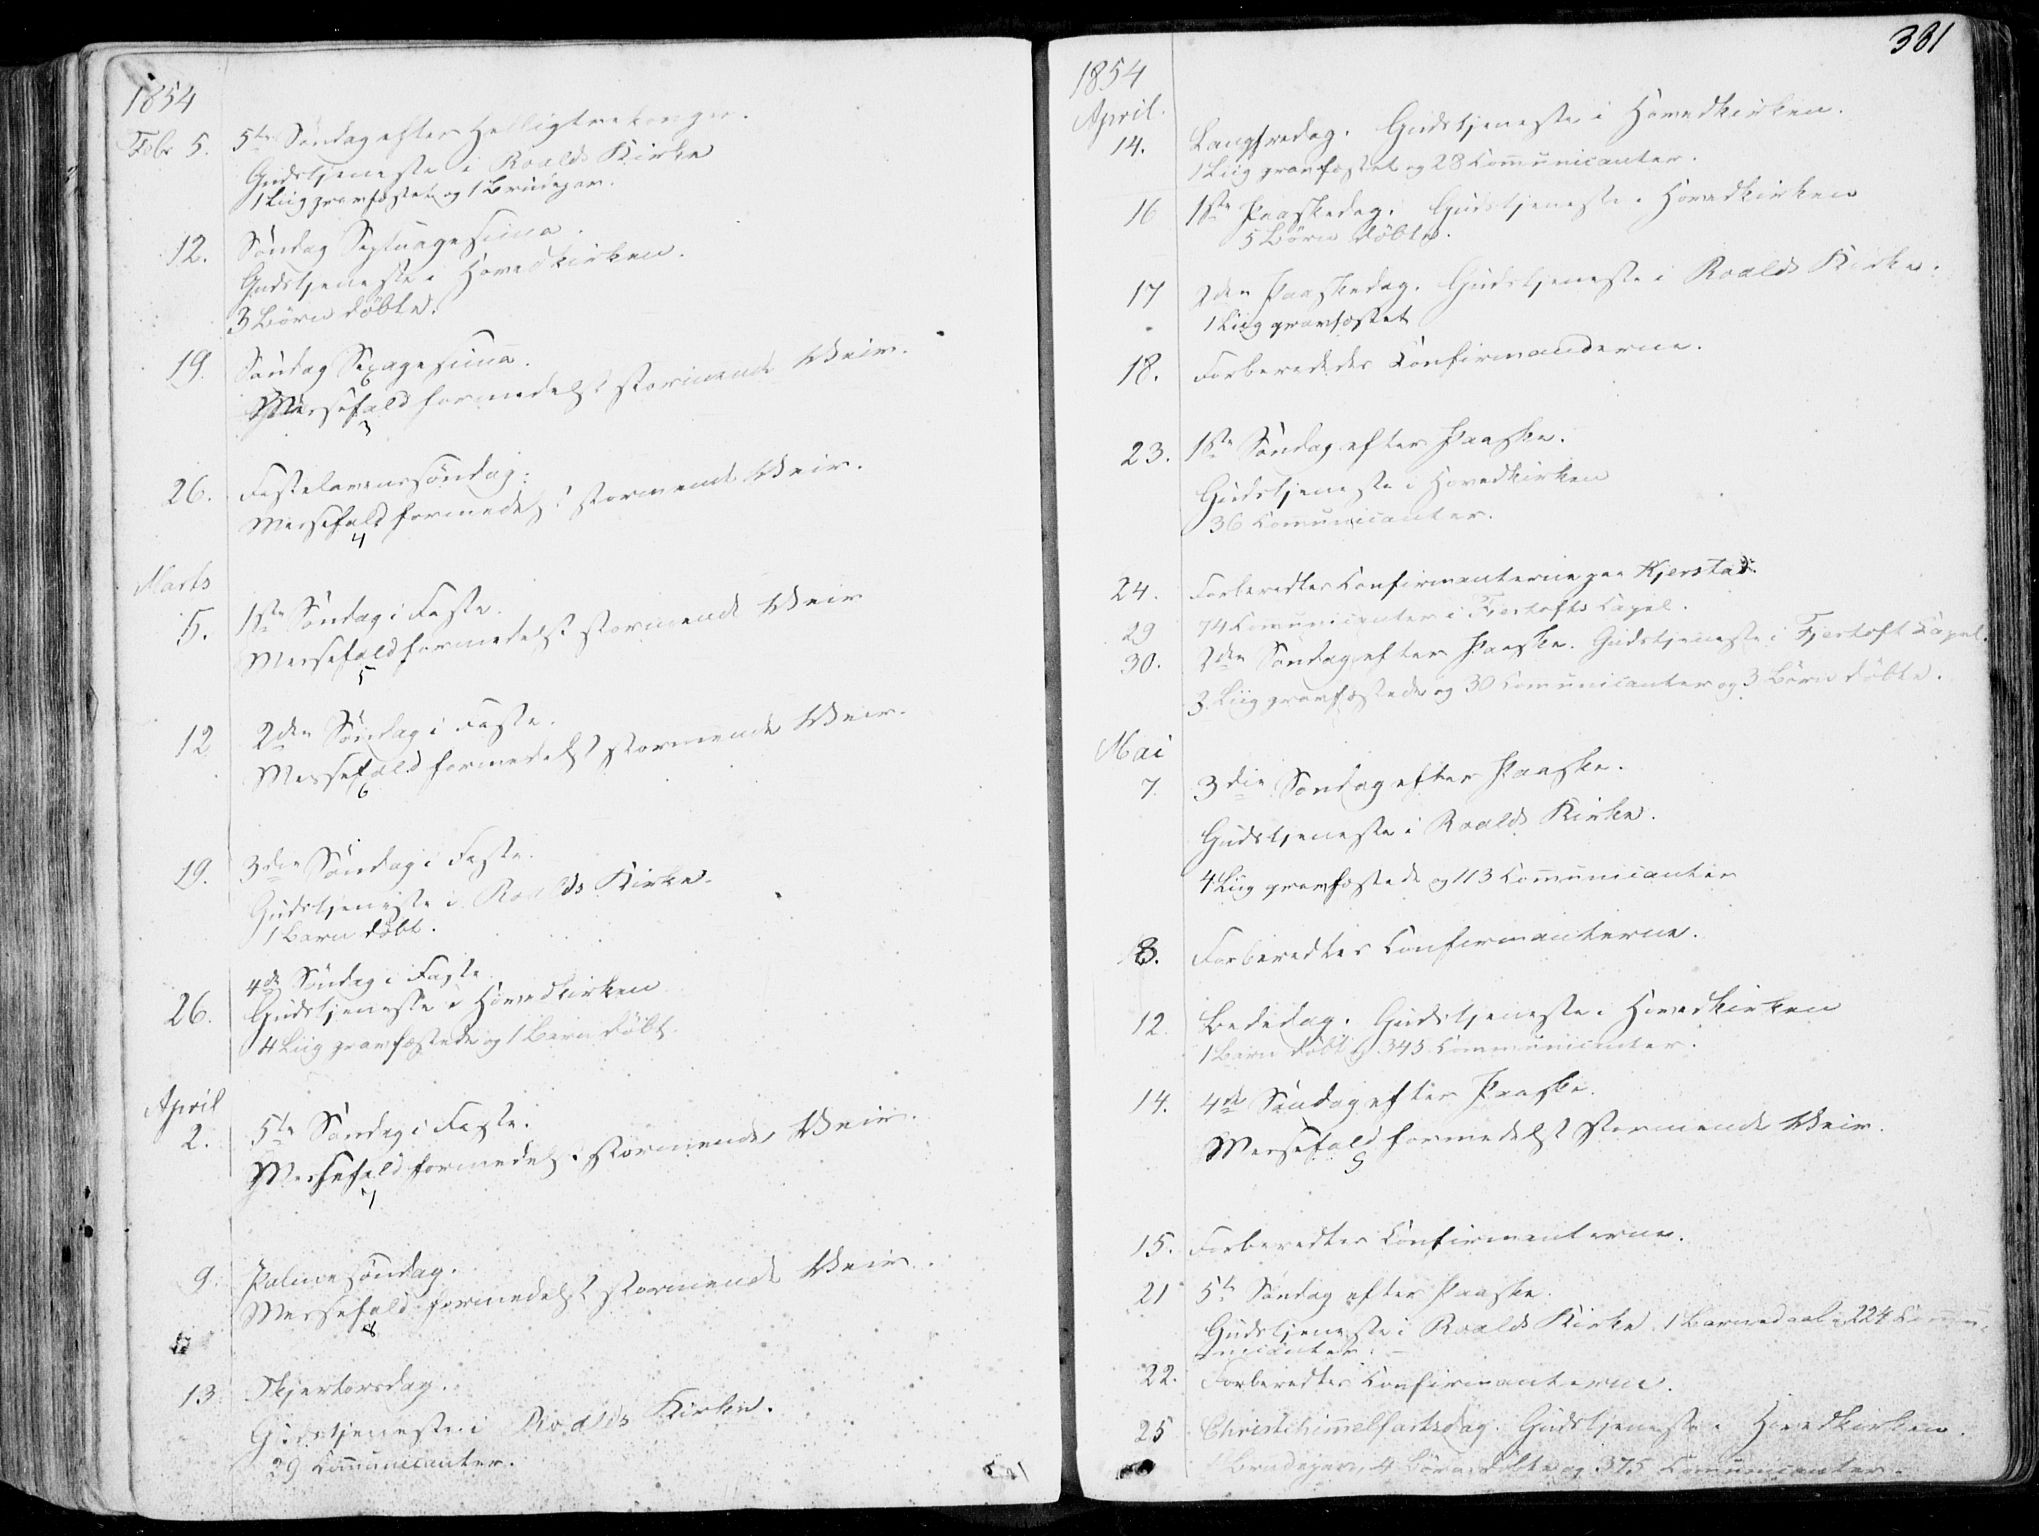 1854
Febr 5. 5te Søndag efter Helligtrekonger.
Gudstjeneste i Roalds Kirke
1 Liig gravfæstet og 1 Brudepar.
12. Søndag Septuagesima.
Gudstjeneste i Hovedkirken.
3 Børn døbte.
19. Søndag Sexagesima.
Messefald formedelst stormende Veir.
3
26. Fastelavenssøndag.
Messefald formedelst stormende Veir.
4
Marts
5. 1ste Søndag i Faste.
Messefald formedelst stormende Veir
5
12 2den Søndag i Faste.
Messefald formedelst stormende Veir.
6
19. 3die Søndag i Faste.
Gudstjeneste i Roalds Kirke.
1 Barn døbt.
4de Søndag i Faste
26. Gudstjeneste i Hovedkirken
4 Liig gravfæstede og 1 Barn døbt.
April
2. 5te Søndag i Faste.
Messefald formedelst stormende Veir.
7
9. Palmesøndag.
Messefald formedelst stormende Veir.
8
13 Skjertorsdag.
Gudstjeneste i Roalds Kirke.
29 Communicanter.
381
1854
April.
14. Langfredag. Gudstjeneste i Hovedkirken.
1 Liig gravfæstet og 28 Communicanter.
16 1ste Paaskedag. Gudstjeneste i Hovedkirken
5 Børn døbte.
17 2den Paaskedag. Gudstjeneste i Roalds Kirke.
1 Liig gravfæstet
18. Forberededes Confirmanderne.
23. 1ste Søndag efter Paaske.
Gudstjeneste i Hovedkirken
36 Communicanter.
24. Forberedtes Confirmanterne paa Kjerstad.
29 74 Communicanter i Fjertofts Capel.
30. 2den Søndag efter Paaske. Gudstjeneste i Fjertoft Capel.
3 Liig gravfæstede og 30 Communicanter og 3 Børn døbte.
Mai
7. 3die Søndag efter Paaske.
Gudstjeneste i Roalds Kirke.
4 Liig gravfæstede og 113 Communicanter
8. Forberedtes Confirmanterne.
12. Bededag. Gudstjeneste i Hovedkirken
1 Barn døbt og 345 Communicanter.
14. 4de Søndag efter Paaske.
Messefald formedelst stormende Veir.
9
15. Forberedtes Confirmanterne.
21 5te Søndag efter Paaske.
Gudstjeneste i Roalds Kirke. 1 Barnedaab 224 Commu-
nicanter.
22. Forberedtes Confirmanterne.
25 Christihimmelfartsdag. Gudstjeneste i Hovedkirken.
Brudepar, 4 Børn døbte og 375 Communicanter.